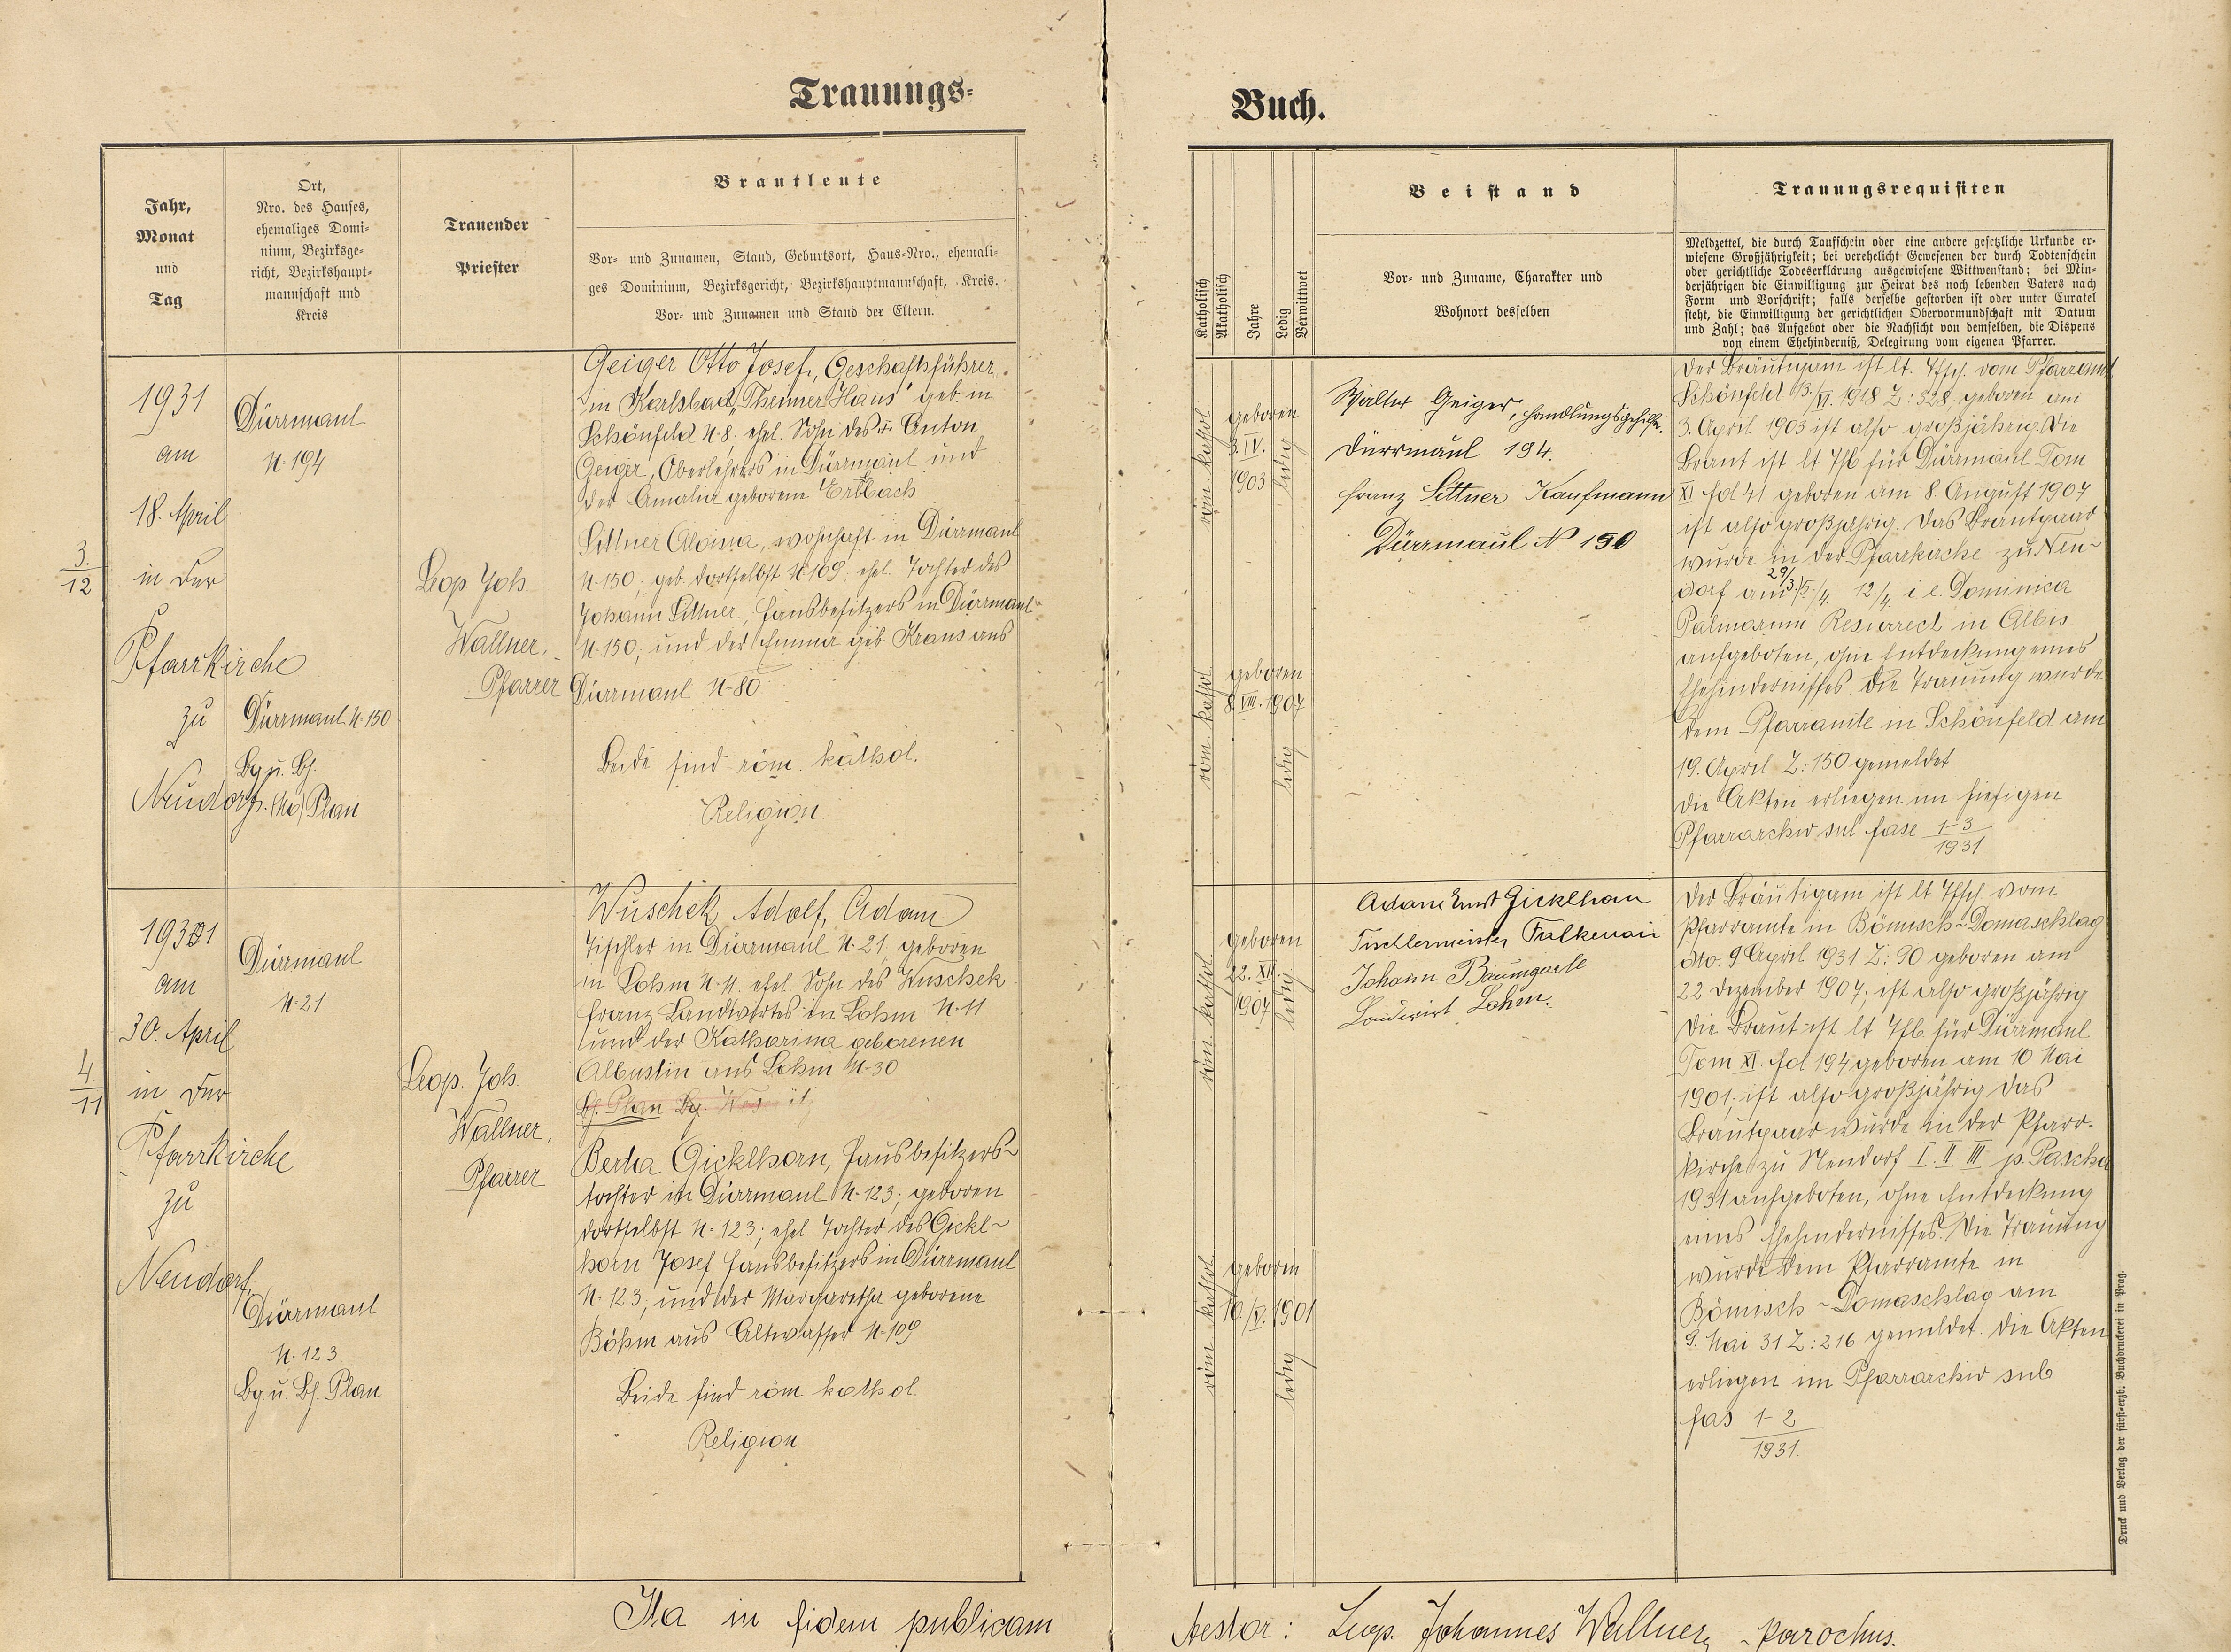 Trauungs-
Buch.
Jahr,
Monat
und
Tag
Ort,
Nro. des Hauses,
ehemaliges Domi-
nium, Bezirksge-
richt, Bezirkshaupt-
mannschaft und
Kreis
Trauender
Priester
Brautleute
Vor- und Zunamen, Stand, Geburtsort, Haus-Nro., ehemali-
ges Dominium, Bezirksgericht, Bezirkshauptmannschaft, Kreis.
Vor- und Zunamen und Stand der Eltern.
Katholisch
Akatholisch
Jahre
Ledig
Verwittwet
Beistand
Vor- und Zuname, Charakter und
Wohnort desselben
Trauungsrequisiten
Meldzettel, die durch Taufschein oder eine andere gesetzliche Urkunde er-
wiesene Großjährigkeit; bei verehelicht Gewesenen der durch Todtenschein
oder gerichtliche Todeserklärung ausgewiesene Wittwenstand; bei Min-
derjährigen die Einwilligung zur Heirat des noch lebenden Vaters nach
Form und Vorschrift; falls derselbe gestorben ist oder unter Curatel
steht, die Einwilligung der gerichtlichen Obervormundschaft mit Datum
und Zahl; das Aufgebot oder die Nachsicht von demselben, die Dispens
von einem Ehehinderniß, Delegirung vom eigenen Pfarrer.
3.
12
1931
am
18. April
in der
Pfarrkirche
zu
Neudorf
Dürrmaul
N. 194
Dürrmaul N. 150
Bg u. Bh.
Plan
Leop Joh.
Wallner,
Pfarrer
Geiger Otto Josef, Geschäftsführer
in Karlsbad, Haus geb. in
Schönfeld N. 8. ehel. Sohn des Anton
Geiger, Oberlehrers in Dürrmaul und
der Amalia geborene Erlbach
Sittner Aloisia, wohnhaft in Dürrmaul
N. 150; geb. dortselbst N 109; ehel. Tochter des
Johann Sittner, Hausbesitzers in Dürrmaul
N. 150; und der Emma geb Kraus aus
Dürrmaul N. 80
Beide sind röm. kathol.
Religion.
röm kathol
geboren
3. IV.
1903
ledig
röm kathol
geboren
8. VIII. 1907
ledig
Walter Geiger, Handlungsgehilfe.
Dürrmaul 194.
Franz Sittner Kaufmann
Dürrmaul N 150
Der Bräutigam ist lt. Tfsch. vom Pfarramt
Schönfeld 13./VI. 1918 Z: 328 geboren am
3. April 1903 ist also großjährig. Die
Braut ist lt Tfb für Dürrmaul Tom
XI fol 41 geboren am 8. August 1907
ist also großjährig. Das Brautpaar
wurde in der Pfarrkirche zu Neu-
dorf am 29/3. 5/4. 12./4. i e. Dominica
Palmarum Resurrect in Albis
aufgeboten, ohne Entdeckung eines
Ehehindernisses. Die Trauung wurde
dem Pfarramte in Schönfeld am
19. April Z: 150 gemeldet
Die Akten erliegen im hiesigen
Pfarrarchiv sub fasc 1-3
1931
4.
11
1931
am
30. April
in der
Pfarrkirche
zu
Neudorf
Dürrmaul
N. 21
Dürrmaul
N. 123
Bg u. Bh. Plan
Leop. Joh.
Wallner,
Pfarrer
Wuschek Adolf, Adam
Tischler in Dürrmaul N. 21, geboren
in Lohm N. 11. ehel. Sohn des Wuschek
Franz Landwirtes in Lohm N. 11
und der Katharina geborenen
Albustin aus Lohm N. 30
Bh. Plan Bg.
Berta Gicklhorn, Hausbesitzers-
tochter in Dürrmaul N. 123; geboren
dortselbst N. 123; ehel. Tochter des Gickl-
horn Josef Hausbesitzers in Dürrmaul
N. 123; und der Margaretha geborene
Böhm aus Altwasser N. 109
Beide sind röm kathol.
Religion
röm kathol
geboren
22. XII
1907
ledig
röm kathol
geboren
10./V. 1901
ledig
Adam Ernst Gicklhorn
Tischlermeister Falkenau
Johann Baumgartl
Landwirt Lohm.
Der Bräutigam ist lt Tfsch. vom
Pfarramte in Bömisch-Domaschlag
dto. 9 April 1931 Z: 90 geboren am
22 Dezember 1907; ist also großjährig
Die Braut ist lt Tfb für Dürrmaul
Tom XI. fol 194 geboren am 10 Mai
1901; ist also großjährig Das
Brautpaar wurde in der Pfarr-
kirche zu Neudorf I. II. III p. Pascha
1931 aufgeboten, ohne Entdeckung
eines Ehehindernisses. Die Trauung
wurde dem Pfarramte in
Bömisch-Domaschlag am
9. Mai 31 Z: 216 gemeldet. Die Akten
erliegen im Pfarrarchiv sub
fas 1-2
1931.
Ita in fidem publicam
testor: Leop. Johannes Wallner, parochus.
Druck und Verlag der fürst-erzb. Buchdruckerei in Prag.